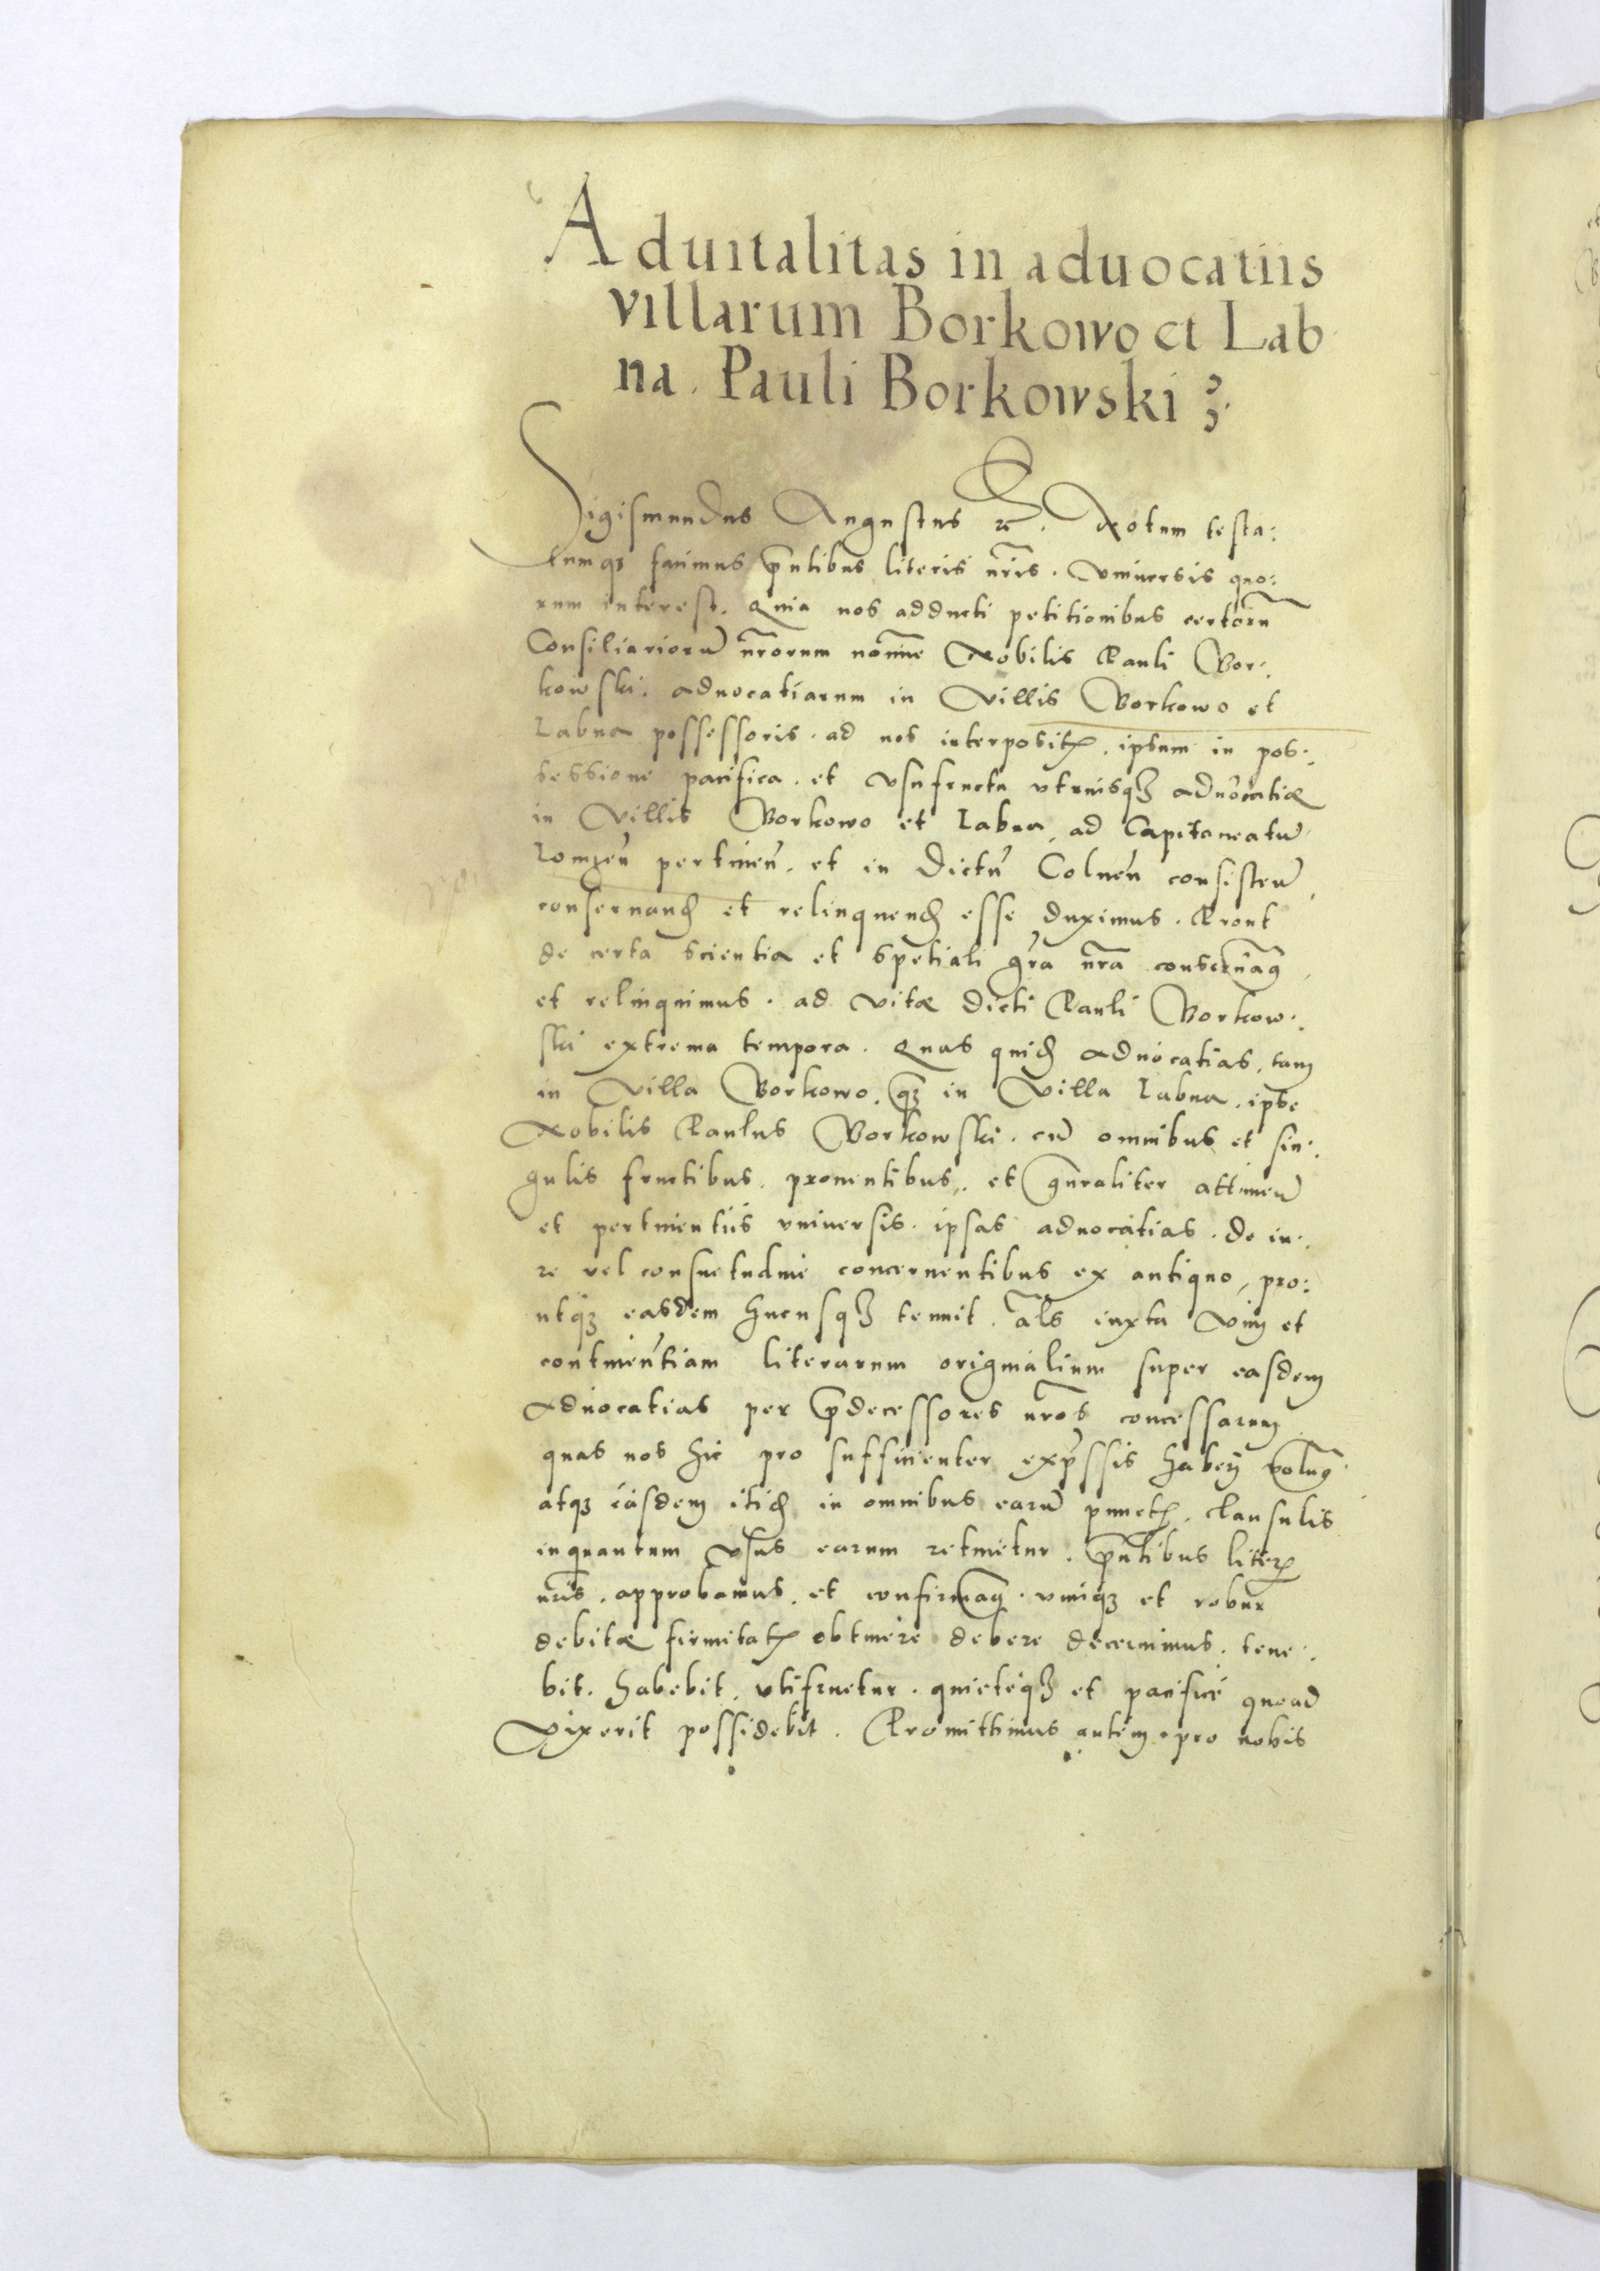 Aduitalitas in aduocatiis
villarum Borkowo et Lab
na. Pauli Borkowski
Sigismundus Augustus rc. Notum testa:
tumq3 facimus pn̄tibus literis nr̄is. Vniuersis quo:
rum interest. Quia nos adducti petitionibus certorū
Consiliariorū nr̄orum noīne Nobilis Pauli Bor:
kowski. aduocatiarum in Villis Borkowo et
Labna possessoris. ad nos interposit. ipsum in pos:
sessione pacifica. et vsufructu vtriusq3 aduocatiæ
in Villis Borkowo et Labna, ad Capitaneatū
Lomzeñ pertineñ. et in Dictu Colneñ consisteñ
conseruand et relinquend esse duximus. Prout
de certa scientia et spetiali gr̄a nr̄a conseruaq
et relinquimus. ad vitæ dicti Pauli Borkow:
ski extrema tempora. Quas quid aduocatias, tam
in Villa Borkowo. q3 in Villa Labna. ipse
Nobilis Paulus Borkowski. cū omnibus et sin:
gulis fructibus. prouentibus. et gn̄raliter attineñ
et pertinentiis vniuersis. ipsas aduocatias. de iu:
re vel consuetudine concernentibus ex antiquo, pro:
utq3 easdem hucusq3 tenuit. als iuxta vim et
continentiam literarum originalium super easdem
aduocatias per pdecessores nr̄os concessarum
quas nos hic pro sufficienter expssis haberi volum
atq3 easdem itid in omnibus earū punct. clausulis
inquantum vsus earum retinetur. pn̄tibus liter
nr̄is. approbamus. et confirmaq. vimq3 et robur
debitæ firmitat obtinere debere decernimus. tene:
bit. habebit. vtifruetur. quieteq3 et pacifice quoad
Vixerit possidebit. Promittimus autem pro nobis